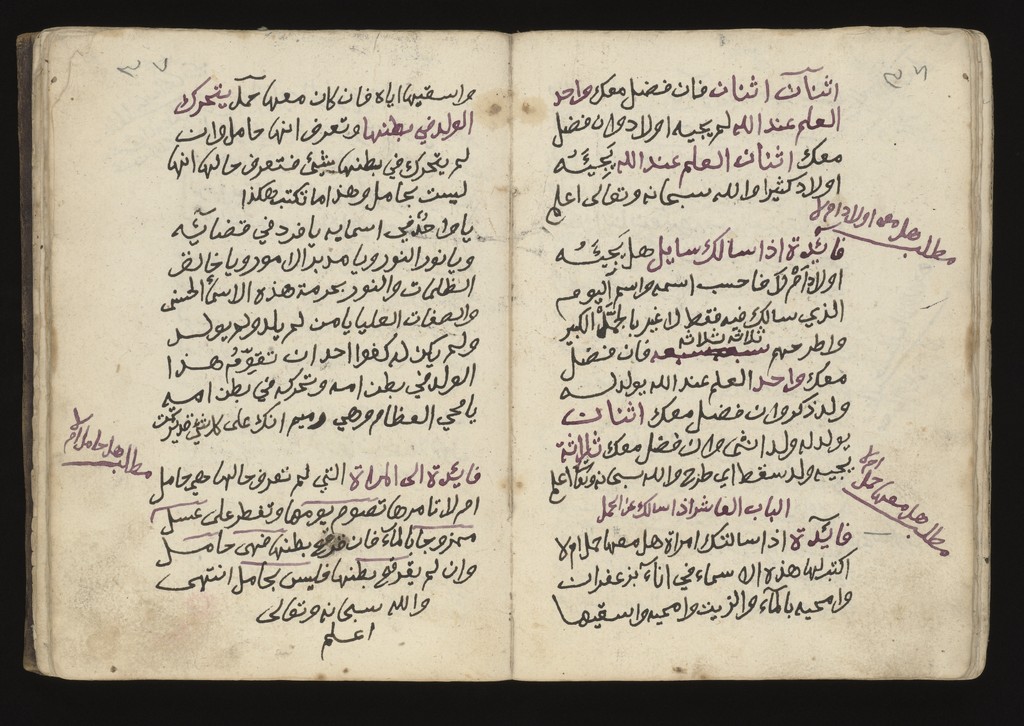 ٣٦
اثنان اثنان فان فضل معك واحد
العلم عند الله لم يجيه اولاد وان فضل
معك اثنان العلم عند الله يجيئه
اولاد كثير والله سبحانه وتعالى اعلم
مطلب هل معه اولاد ام لا
فائدة اذا سالك سايل هل يجيئه
اولاد ام لا فاحسب اسمه واسم اليوم
الذي سالك فيه فقط لا غير بالجمل الكبير
واطرحهم ثلاثة ثلاثة فان فضل
معك واحد العلم عند الله يولد له
ولد ذكر وان فضل معك اثنان
يولد له ولد انثى وان فضل معك ثلاثة
يجيه ولد سقط اي طرح والله سبحانه وتعا اعلم
مطلب هل معها حمل ام لا
الباب العاشر اذا سالك عن الحمل
فائدة اذا سالتك امراة هل معها حمل ام لا
اكتب لها هذه الاسماء في اناء بزعفران
وامحيه بالماء والزيت وامحيه واسقيها
٣٧
واسقيها اياه فان كان معها حمل يتحرك
الولد في بطنها وتعرف انها حامل وان
لم يتحرك في بطنها شيئ فتعرف حالها انها
ليست بحامل وهذا ما تكتب هكذا
يا واحد في اسمايه يا فرد في قضائه
ويا نور النور ويا مدبر الامور ويا خالق
الظلمات والنور بحرمة هذه الاسماء الحسنى
والصفات العليا يا من لم يلد ولم يولد
ولم يكن له كفوا احد ان تقوم هذا
الولد في بطن امه وتحركه في بطن امه
يا محي العظام وهي رميم انك على كل شئ قدير تمت
مطلب هل حامل ام لا
فائدة الى المراة التي لم تعرف حالها هي حامل
ام لا تامرها تصوم يومها وتفطر على عسل
ممزوجا بالماء فان بطنها فهي حامل
وان لم بطنها فليس بحامل انتهى
والله سبحانه وتعالى
اعلم